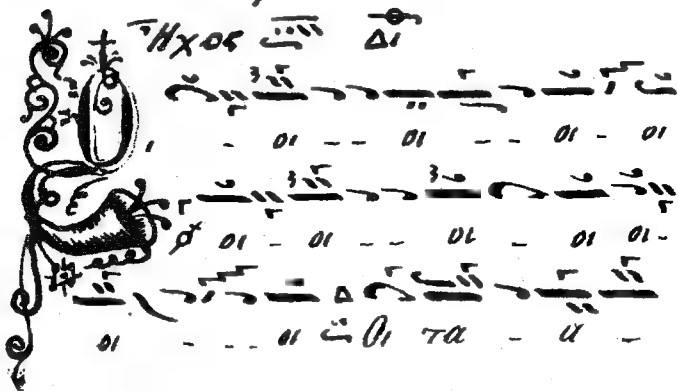 Ἦχος Δι
Οι - οι - - οι - - οι - οι
οι - οι - - οι - οι οι -
οι - - - οι Οι τα - α -